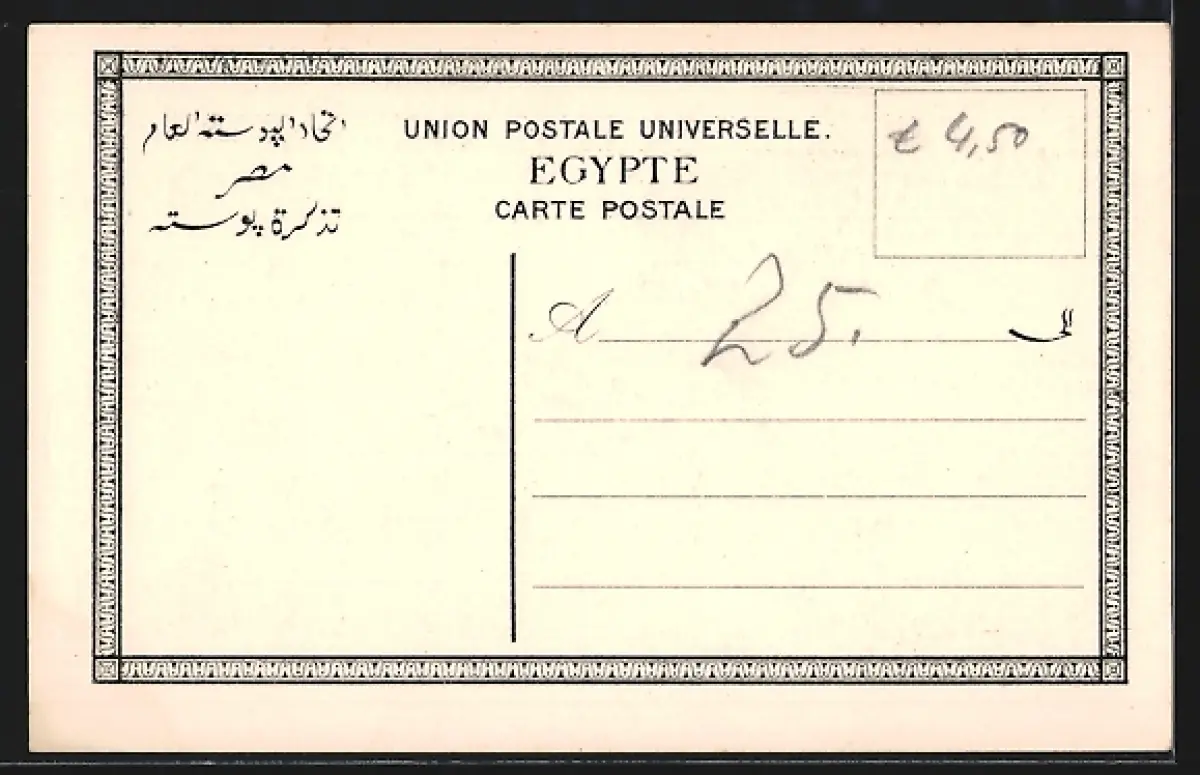 اتحاد الپوسته العام
مصر
تذكرة پوسته
UNION POSTALE UNIVERSELLE.
EGYPTE
CARTE POSTALE
€ 4,50
A 25. الى